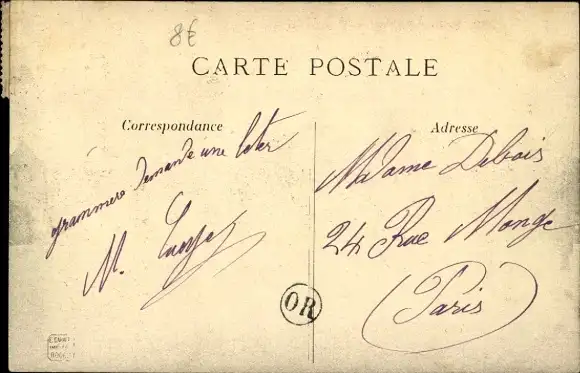 8€
CARTE POSTALE
Correspondance
grammere demande une
M.
Adresse
Madame Debois
24 Rue Monge
(Paris)
OR